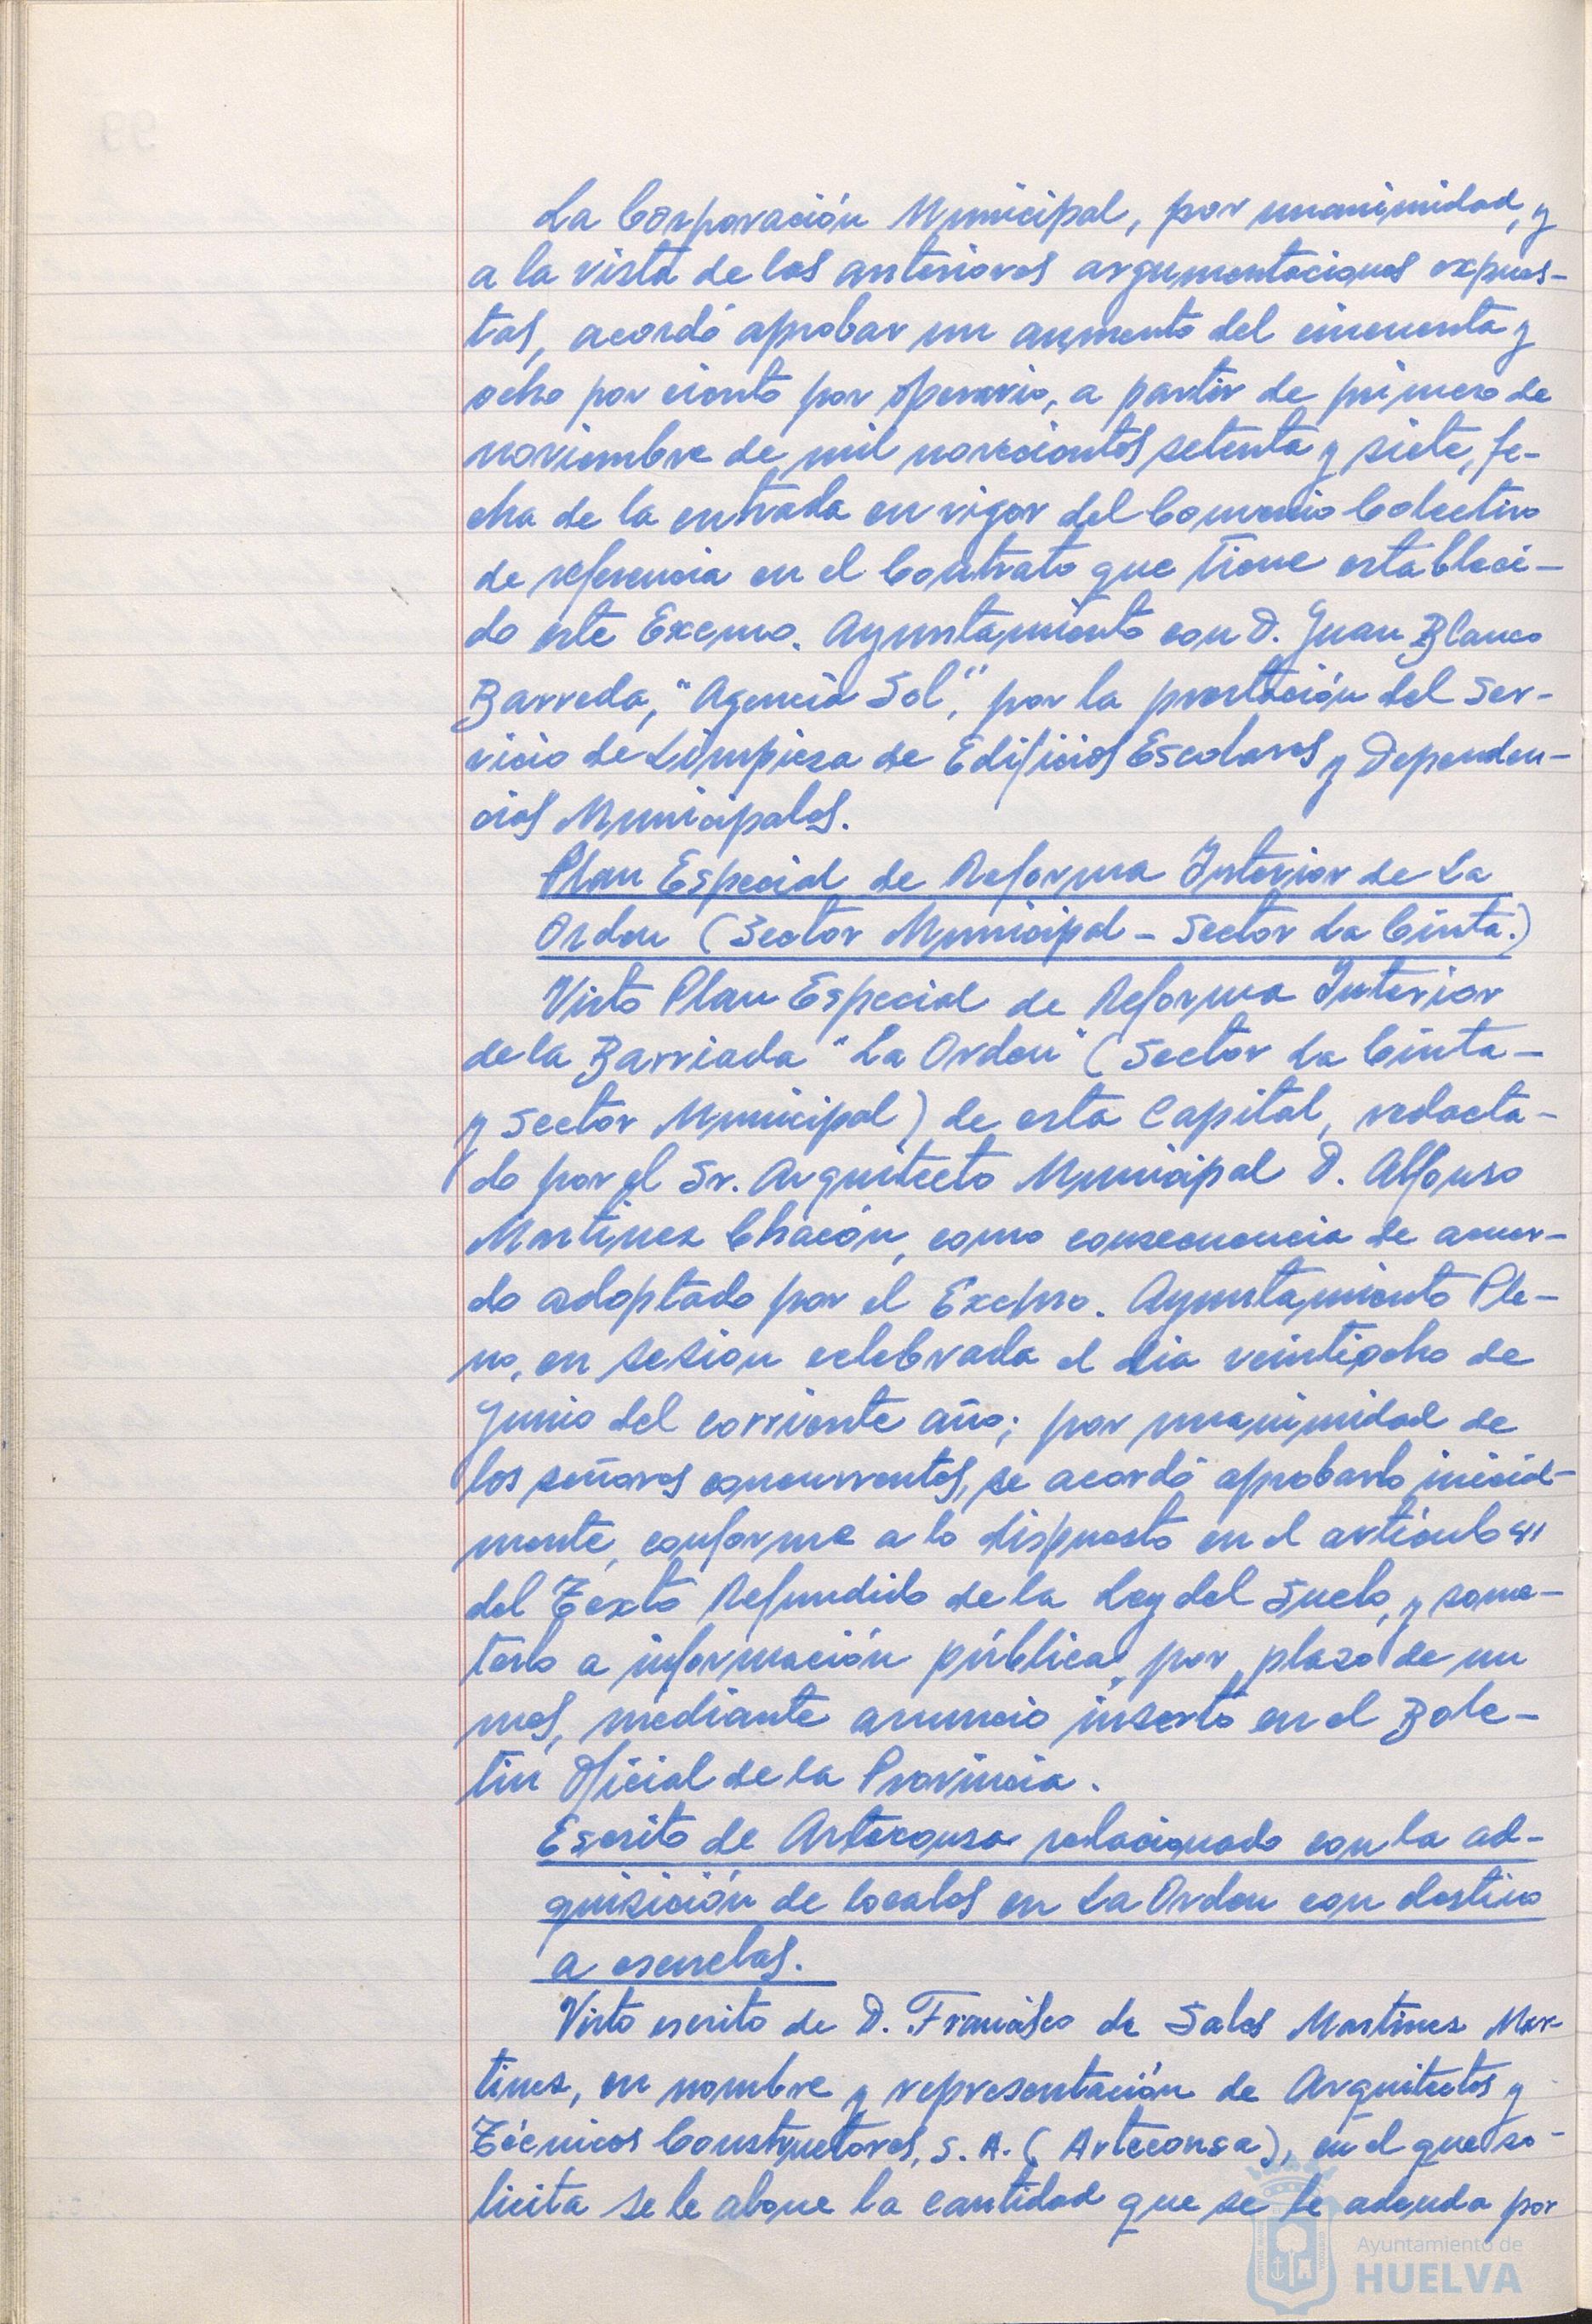 La Corporación Municipal, por unanimidad, y
a la vista de las anteriores argumentaciones expues-
tas, acordó aprobar un aumento del cincuenta y
ocho por ciento por operario, a partir de primero de
noviembre de mil novecientos setenta y siete, fe-
cha de la entrada en vigor del Convenio Colectivo
de referencia en el Contrato que tiene estableci-
do este Excmo. Ayuntamiento con D. Juan Blanco
Barreda, "Agencia Sol", por la prestación del Ser-
vicio de Limpieza de Edificios Escolares y Dependen-
cias Municipales.
Plan Especial de Reforma Interior de La
Orden (Sector Municipal - Sector La Cinta.)
Visto Plan Especial de Reforma Interior
de la Barriada "La Orden" (Sector La Cinta-
y Sector Municipal) de esta Capital, redacta-
do por el Sr. Arquitecto Municipal D. Alfonso
Martinez Chacón, como consecuencia de acuer-
do adoptado por el Excmo. Ayuntamiento Ple-
no, en sesion celebrada el dia veintiocho de
Junio del corriente año; por unanimidad de
los señores concurrentes, se acordó aprobarlo inicial-
mente, conforme a lo dispuesto en el articulo 41
del Texto Refundido de la Ley del Suelo, y some-
terlo a información pública, por plazo de un
mes, mediante anuncio inserto en el Bole-
tin Oficial de la Provincia.
Escrito de Arteconsa relacionado con la ad-
quisición de locales en La Orden con destino
a escuelas.
Visto escrito de D. Francisco de Sales Martinez Mar-
tinez, en nombre y representación de Arquitectos y
Técnicos Constructores, S. A. (Arteconsa), en el que so-
licita se le abone la cantidad que se le adeuda por
Ayuntamiento de
HUELVA